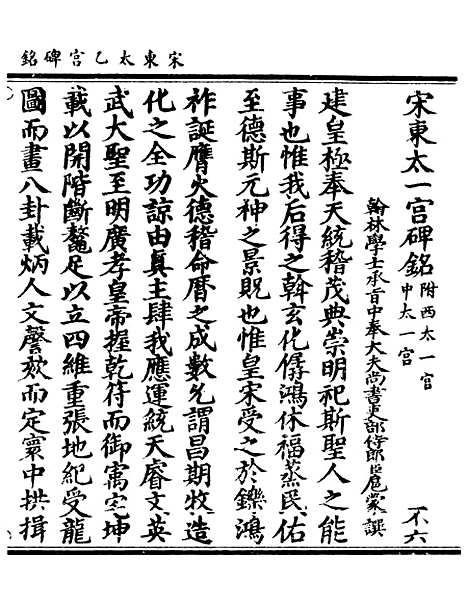 宋東太乙宮碑銘
宋東太一宮碑銘 附西太一宮 中太一宮 不六
翰林學士承旨中奉大夫尚書吏部侍郎臣扈蒙撰
建皇極奉天統稽茂典崇明祀斯聖人之能
事也惟我后得之斡玄化僝鴻休福蒸民佑
至德斯元神之景貺也惟皇宋受之於鑠鴻
祚誕膺火德稽命曆之成數允謂昌期牧造
化之全功諒由真主肆我應運統天睿文英
武大聖至明廣孝皇帝握乾符而御寓定坤
載以開階斷鼇足以立四維重張地紀受龍
圖而畫八卦載炳人文謦欬而定寰中拱揖